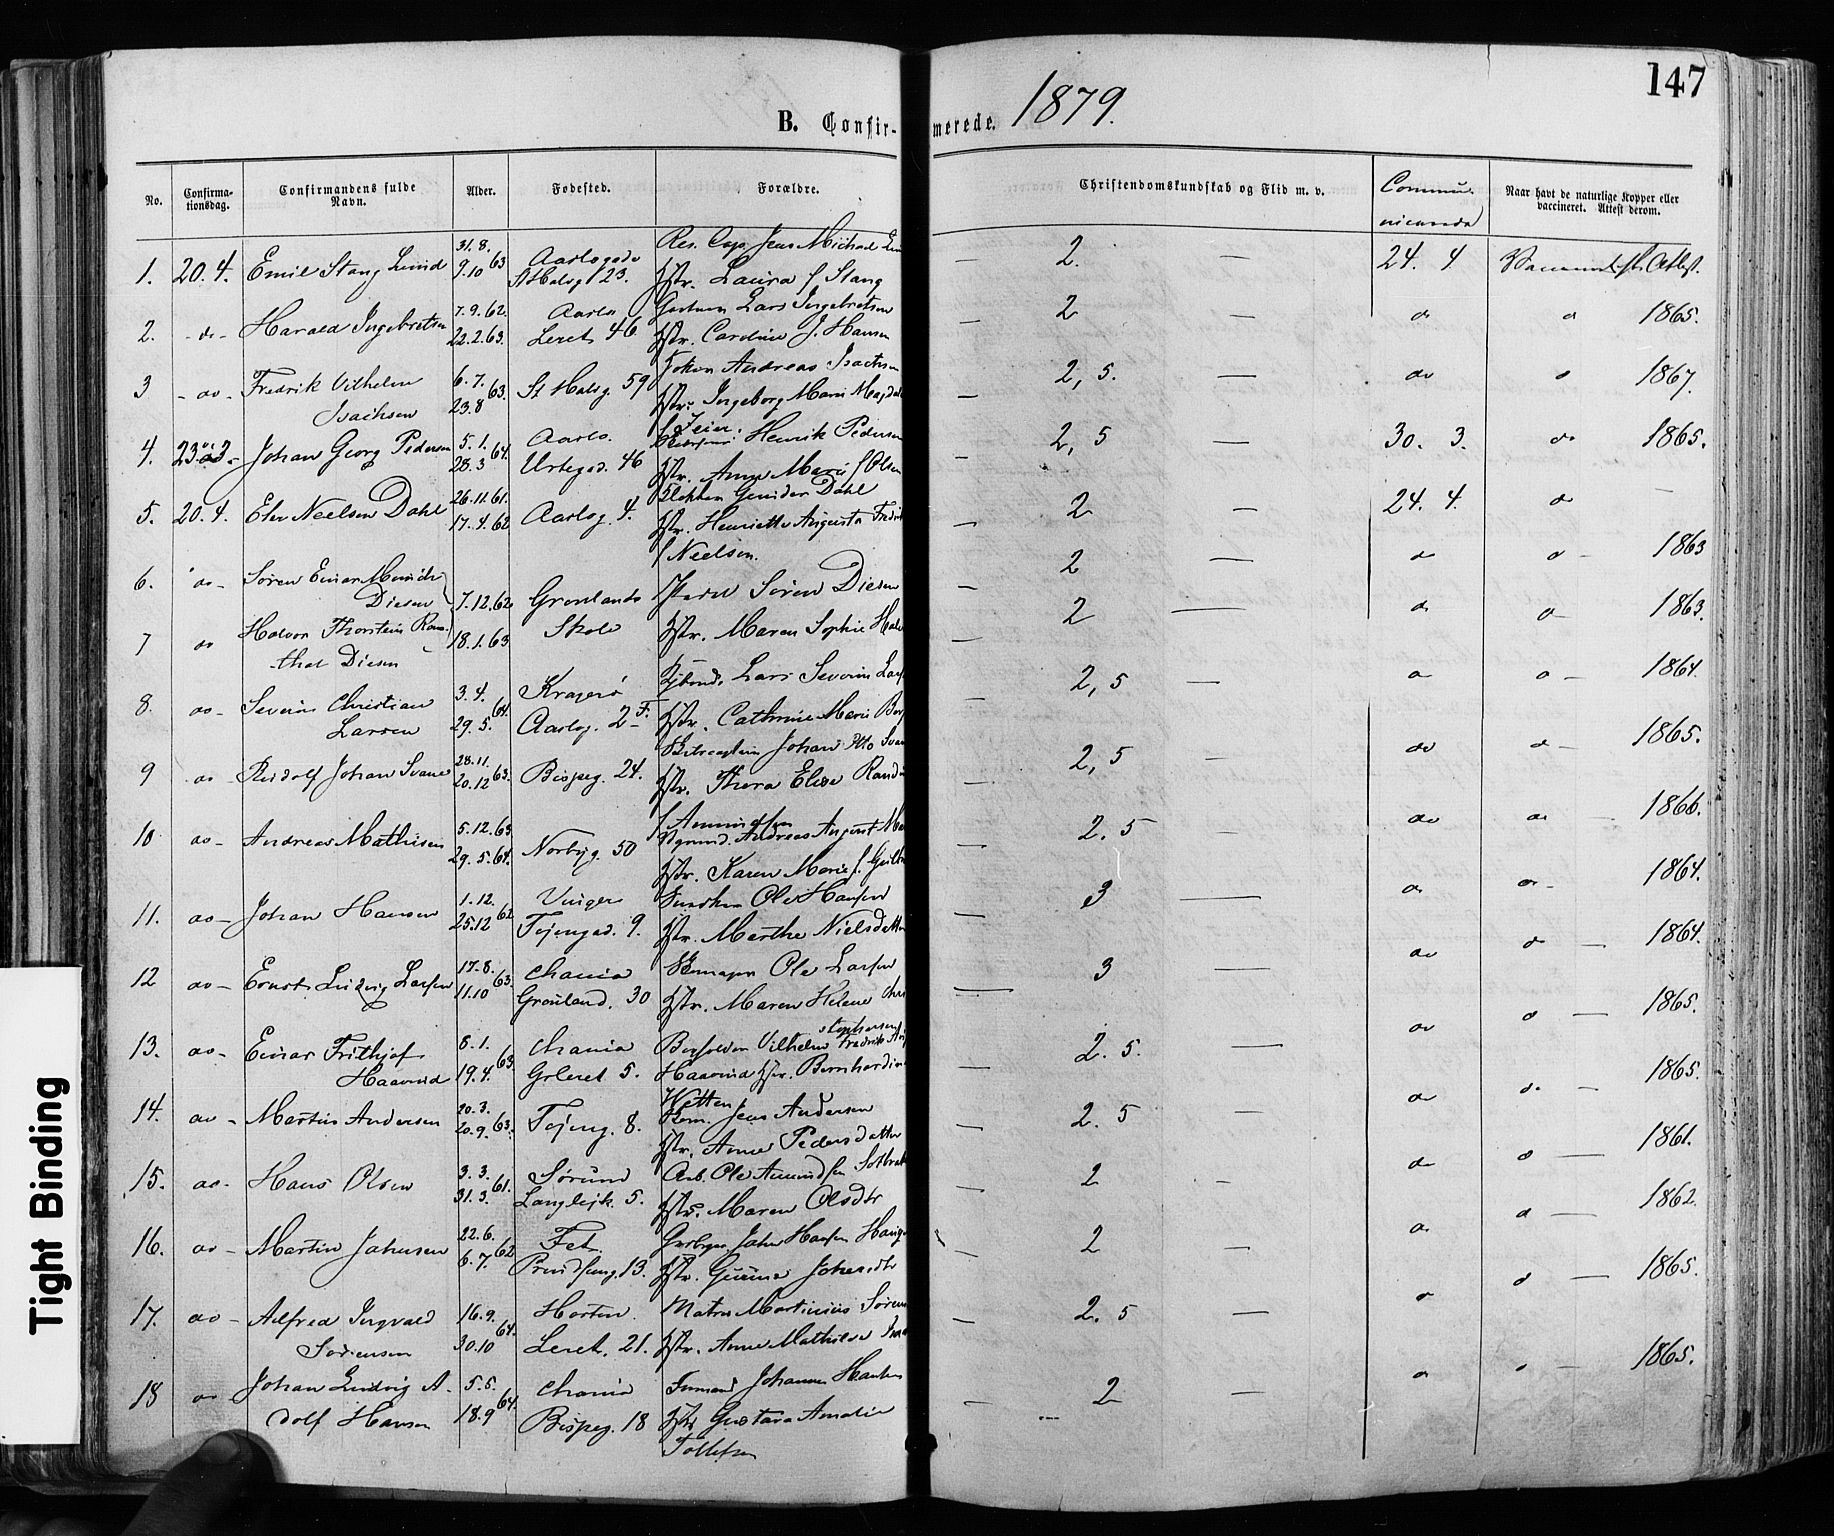 147
B. Confir-
merede. 1879.
No. Confirma-tionsdag. Confirmandens fulde Navn. Alder. Fødested. Forældre. Christendomskundskab og Flid m. v. Commu-nicanda Naar havt de naturlige Kopper eller vaccineret. Attest derom.
31. 8. Res. Cap. Jens Michael
1. 20. 4. Emil Stang Lund 9. 10 63 Aarlogade St Halvg 23. Hstr. Laura f Stang 2. — 24. 4. Attest.
7. 9. 62. Aarlo Gartner Lars Ingebretsen
2. - do - Harald Ingebretsen 22. 2. 63. Leret 46 Hstr. Caroline J. Hansen 2 — do do 1865.
6. 7. Andreas Isachsen
3 - do - Fredrik Vilhelm 63. St Halvg. 59 Hstr. Ingeborg Marie 2, 5. — do do 1867.
Isachsen 23. 8 f Feier.
5. 1. Aarlo. Henrik Pedersen
4. 23. 3 - Johan Georg Pedersen 64. 28. 3 Urtegad. 46 Hstr. Anne Marie f Olsen 2, 5 — 30. 3. do 1865.
26. 11. 61. Gunder Dahl
5. 20. 4. Neelsen Dahl 17. 4. 62 Aarlog. 4. Hstr. Henriette Augusta 2 — 24. 4. do —
f Neelsen.
6. do - Søren Einar Munch Diesen 7. 12. 62 Grønlands Søren Diesen 2 — do do - 1863
7 do Halvor Thorstein Rom-
thal Diesen 18. 1. 63 Skole Hstr. Maren Sophie 2 — do do - 1863.
3. 4. Kragerø Lars Severin
8. do - Severin Christian 64. 2, 5 — do do - 1864.
Larsen 29. 5. Aarlog. 2 F. Hstr. Cathrine Marie
28. 11. Johan Otto
9 do - Rudolf Johan Svane 20. 12 63. Bispeg. 24. Hstr. Thora Elise 2, 5 — do do - 1865.
f Amundsen
5. 12. 63 Andreas August
10 do - Andreas Mathisen 29. 5. 64. Norbyg. 50 Hstr. Karen Marie f. 2. 5 — do do - 1866.
1. 12. Vinger Ole Hansen
11. do - Johan Hansen 25. 12 62 Tøjengad. 9. Hstr. Marthe Nielsdatter 3 — do do - 1864.
17. 8. Chania Ole Larsen
12 do - Ernst Ludvig Larsen 11. 10 63. Grønland. 30 Hstr. Maren Helene 3 — do do — 1864.
8. 1. Chania Vilhelm Fredrik
13. do - Einar Frithjof 63. 2. 5. — do do — 1865.
Haavind 19. 4. Grleret 5. Haavind Hstr.
20. 3. Jens Andersen
14. do - Martin Andersen 20. 9. 63. Tøjeng. 8. Hstr. Anne Pedersdatter 2. 5 — do do - 1865.
3. 3. Sørum Arb. Ole Amundsen
15. do - Hans Olsen 31. 3. 61. Langlejk. 5. Hstr. Maren Olsdtr 2 - do do — 1861.
22. 6. Fet. Johan Hansen
16. do - Martin Johnsen 6. 7. 62 13. Hstr. 2 — do do — 1862.
17. do - Alfred Ingvald 16. 9. Horten. Matros Martinius 2. 5 — do do — 1865.
Sørensen 30. 10 64. Leret. 21. Hstr. Anne Mathilde
18 do - Johan Ludvig A- 5. 5. Chania Johannes 2 — do do — 1865.
dolf Hansen 18. 9 64. Bispeg. 18 Hstr Gustava Amalie
Tollefsen
Tight Binding